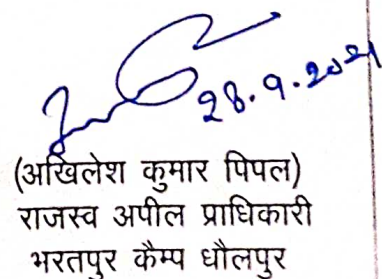 28.9.2021
(अखिलेश कुमार पिपल)
राजस्व अपील प्राधिकारी
भरतपुर कैम्प धौलपुर